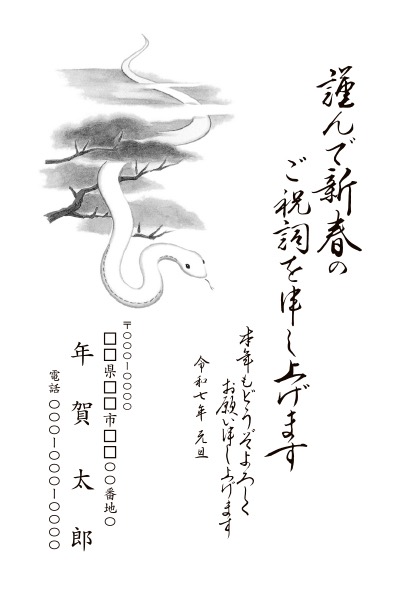 謹んで新春の
ご祝詞を申し上げます
本年もどうぞよろしく
お願い申し上げます
令和七年 元旦
〒〇〇〇-〇〇〇〇
□□県□□市□□〇〇番地〇
年賀太郎
電話 〇〇〇-〇〇〇-〇〇〇〇